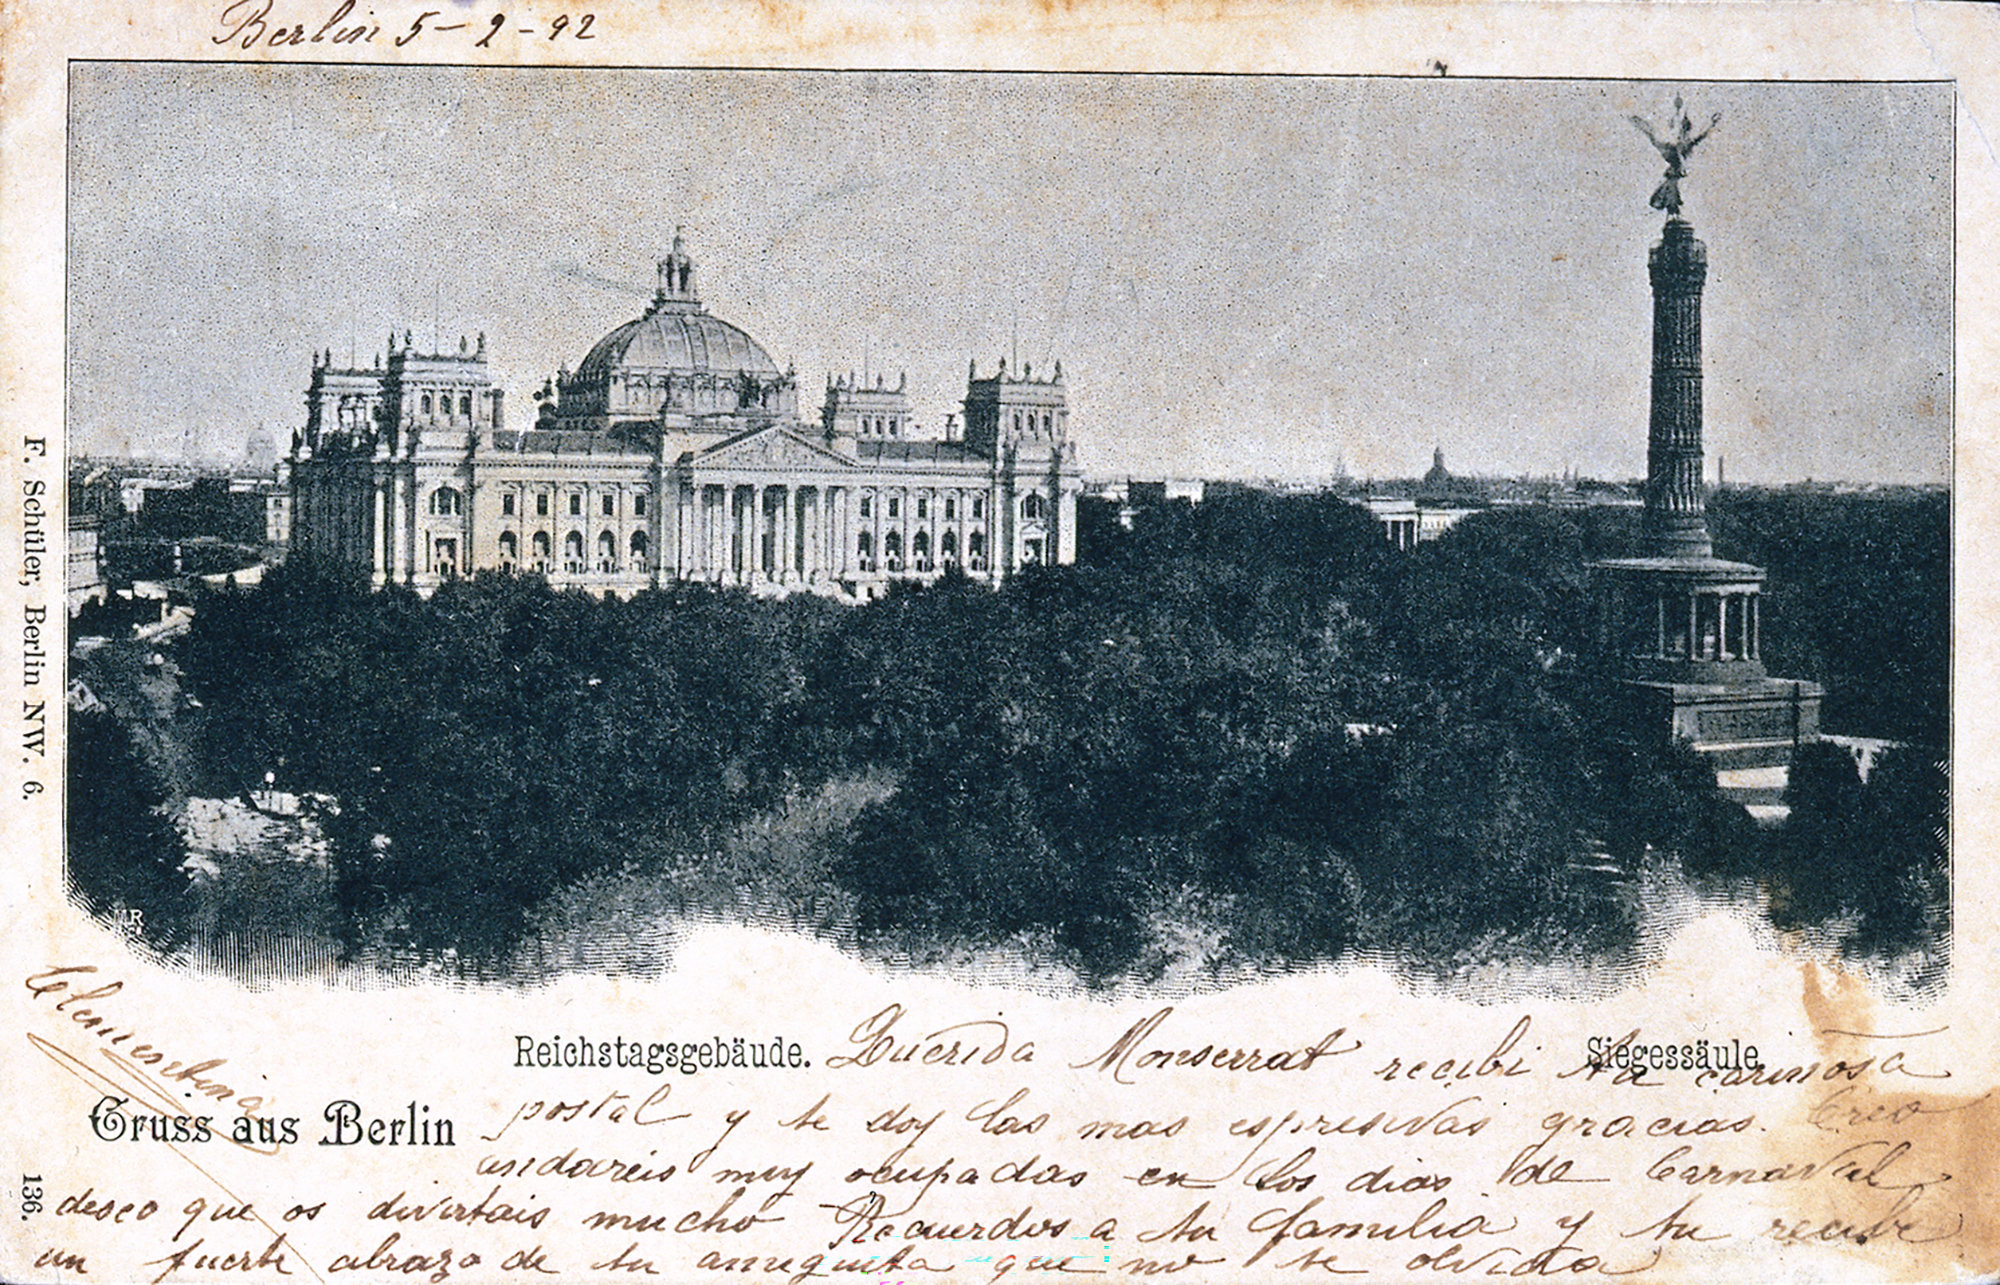 Berlin 5-2-92
F. Schüler, Berlin NW. 6.
MR
Clementina
Reichstagsgebäude.
Siegessäule.
Gruss aus Berlin
136.
Querida Monserrat recibi tu cariñosa
postal y te doy las mas espresivas gracias. Creo
andareis muy ocupadas en los dias de Carnaval
deseo que os divirtais mucho Recuerdos a tu familia y tu recibe
un fuerte abrazo de tu amiguita que no te olvida